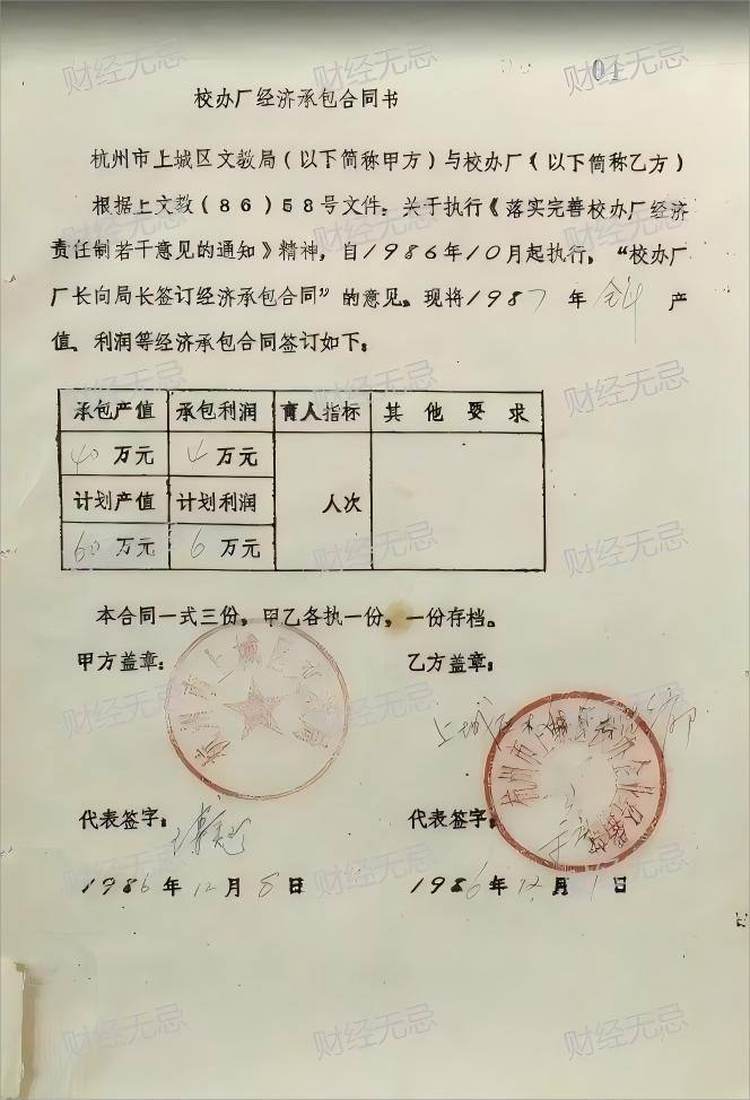 01
校办厂经济承包合同书
杭州市上城区文教局(以下简称甲方)与校办厂(以下简称乙方)
根据上文教(86)58号文件:关于执行《落实完善校办厂经济
责任制若干意见的通知》精神,自1986年10月起执行,“校办厂
厂长向局长签订经济承包合同”的意见。现将1987年全年产
值、利润等经济承包合同签订如下:
承包产值 承包利润 育人指标 其他要求
40万元 4万元
计划产值 计划利润 人次
60万元 6万元
本合同一式三份,甲乙各执一份,一份存档。
甲方盖章: 乙方盖章:
杭州市上城区
上城区
杭州市上城区校办企业
代表签字: 代表签字:
1986年12月8日 1986年12月1日
财经无忌